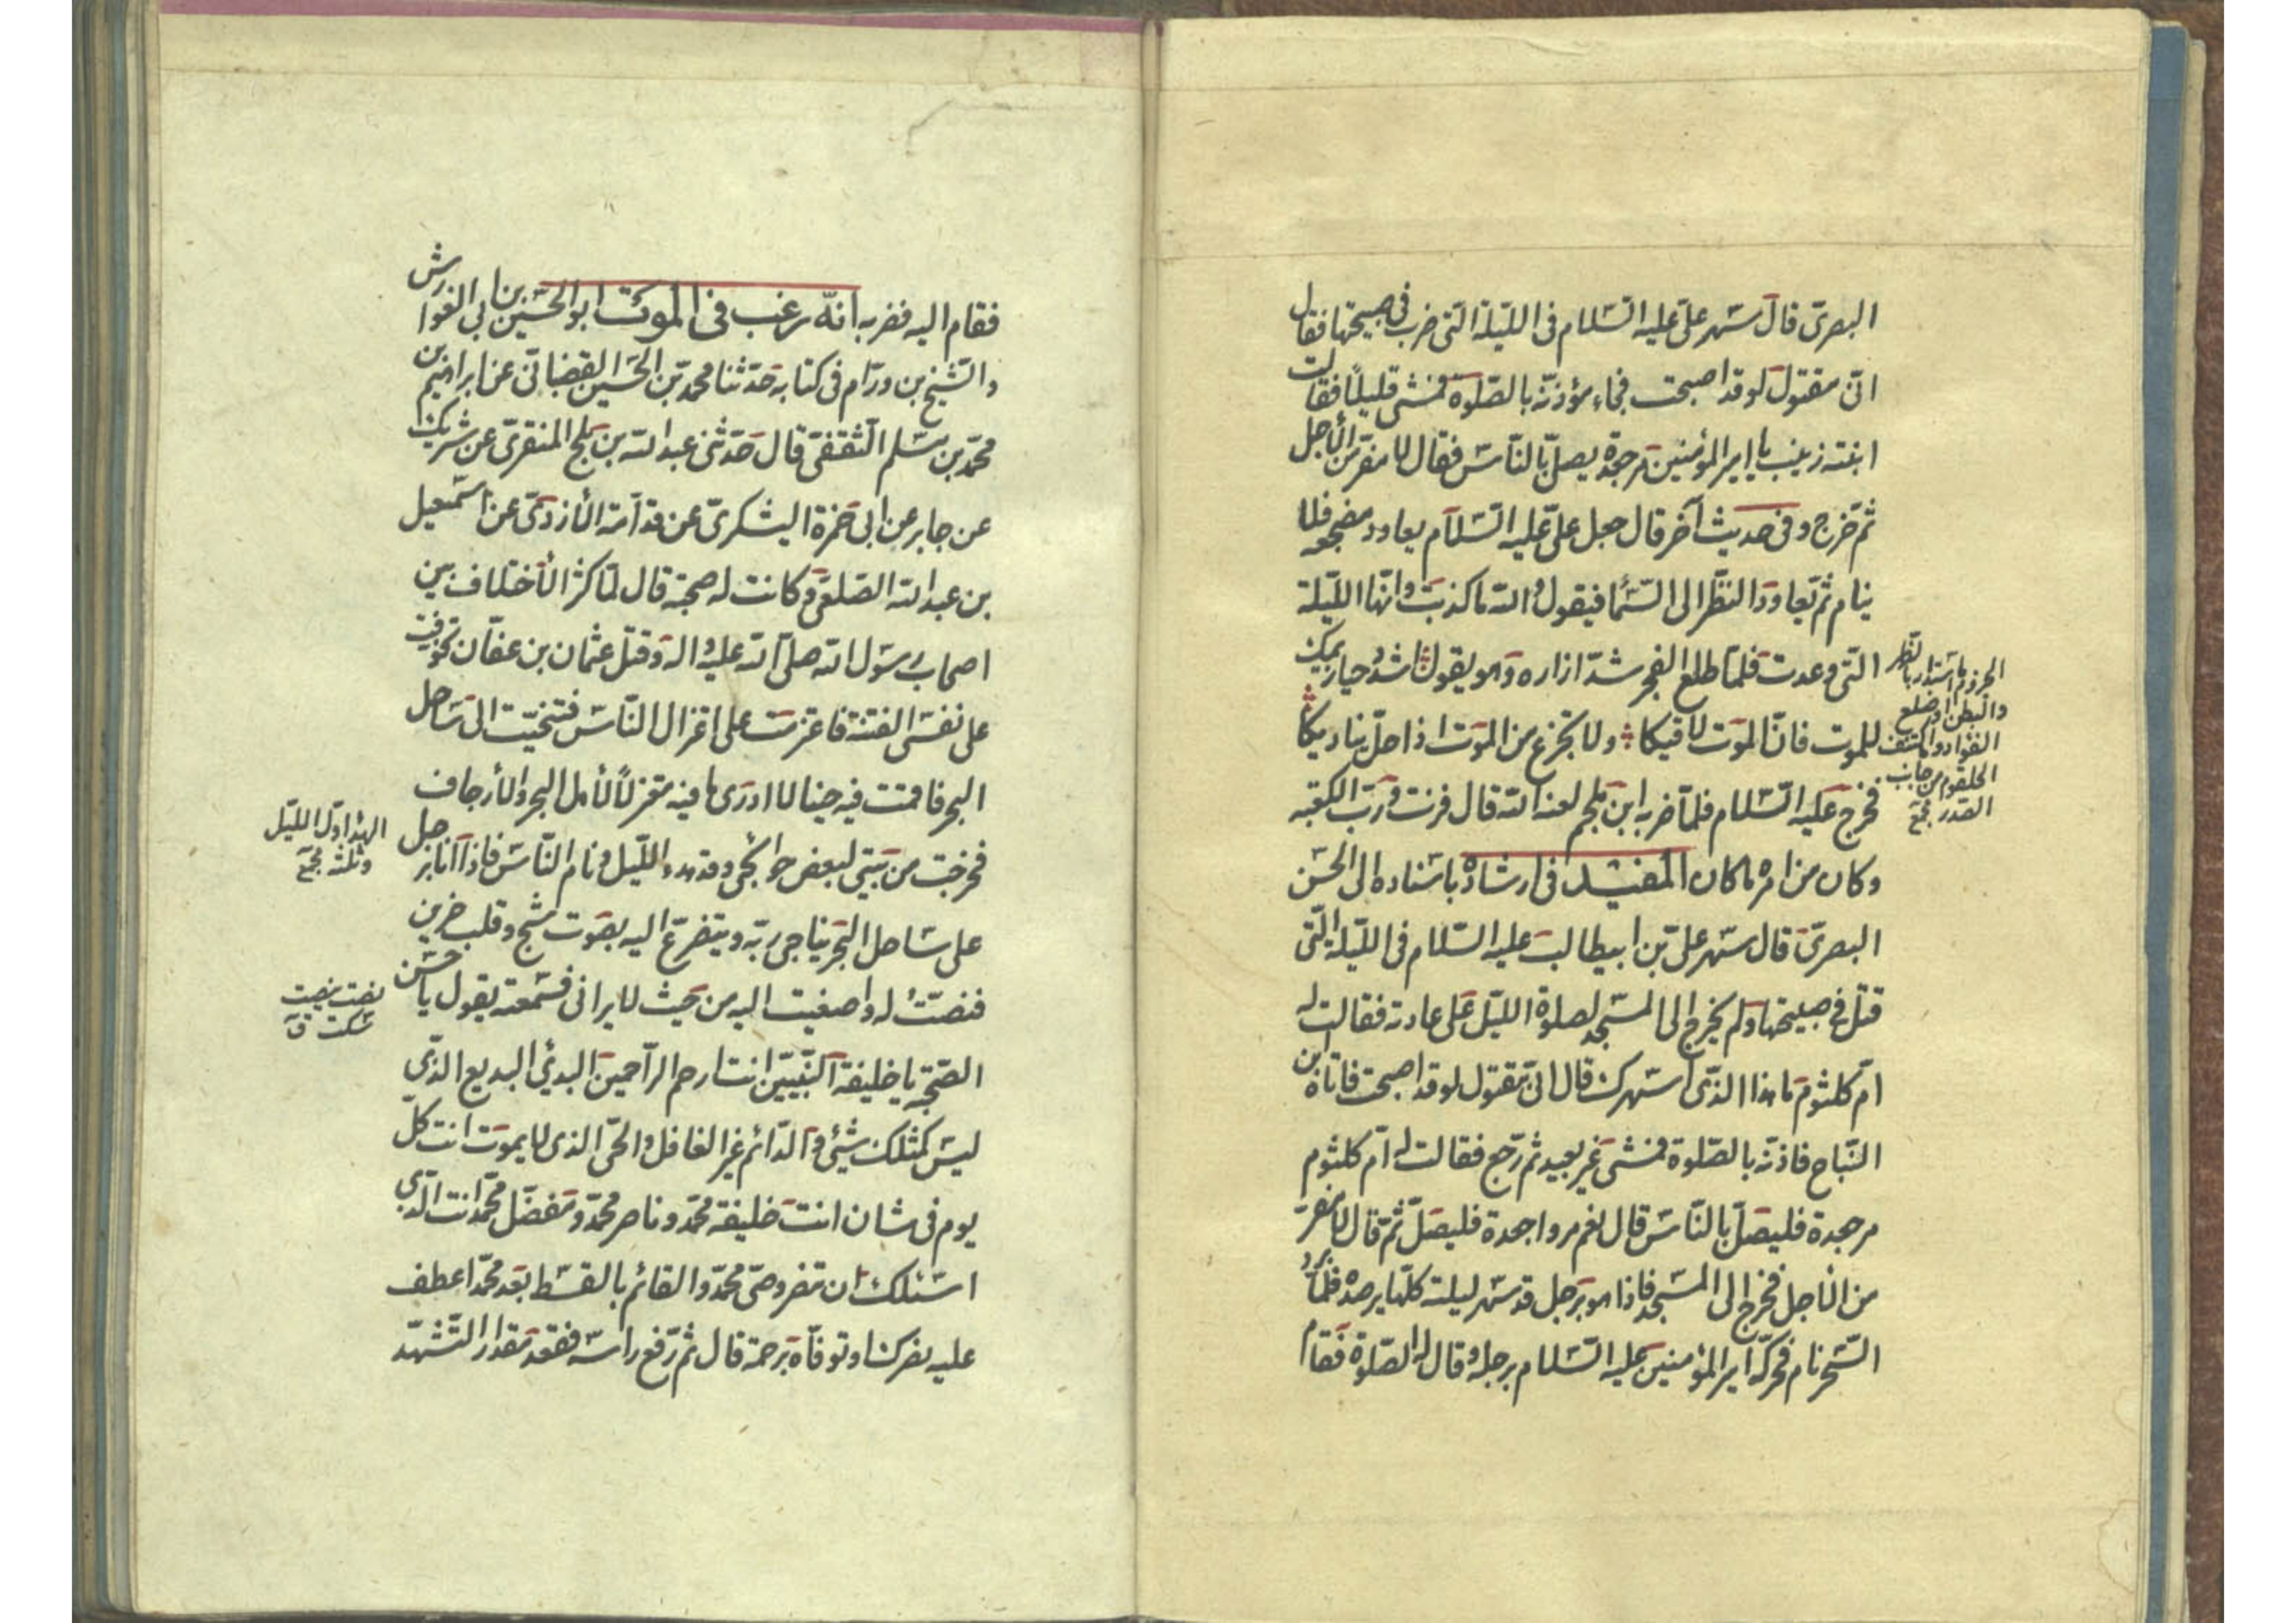 البصری قال سهر علی علیه السلام فی اللیلة التی ضرب فی صبیحتها فقال
انی مقتول لو قد اصبحت فجاء مؤذنه بالصلوة فمشی قلیلًا فقالت
ابنته زینب یا امیر المؤمنین مر جعدة یصلی بالناس فقال لا مفر من الأجل
ثم خرج و فی حدیث آخر قال جعل علی علیه السلام یعاود مضجعه فلا
ینام ثم یعاود النظر الی السماء فیقول والله ما کذبت و انها اللیلة
التی وعدت فلما طلع الفجر شد ازاره و هو یقول اشدد حیازیمک
للموت فان الموت لاقیکا ولا تجزع من الموت اذا حل بنادیکا
فخرج علیه السلام فلما ضربه ابن ملجم لعنه الله قال فزت و رب الکعبه
و کان من امره ما کان المفید فی ارشاده باسناده الی الحسن
البصری قال سهر علی بن ابیطالب علیه السلام فی اللیلة التی
قتل فی صبیحتها ولم یخرج الی المسجد لصلوة اللیل علی عادته فقالت له
ام کلثوم ما هذا الذی اسهرک قال انی مقتول لو قد اصبحت فاتاه ابن
النباح فاذنه بالصلوة فمشی غیر بعید ثم رجع فقالت له ام کلثوم
مر جعدة فلیصل بالناس قال نعم مروا جعدة فلیصل ثم قال لا مفر
من الأجل فخرج الی المسجد فاذا هو برجل قد سهر لیلته کلها یرصده فلما برد
السحر نام فحرکه امیر المؤمنین علیه السلام برجله و قال له الصلوة فقام
الحیزوم ما استدار بالظهر
والبطن او ضلع
الفؤاد و ما اکتنف
الحلقوم من جانب
الصدر مجمع
فقام الیه فضربه انه رغب فی الموت ابو الحسین بن ابی الفوارس
والشیخ بن ورام فی کتابه حدثنا محمد بن الحسین القضبانی عن ابراهیم بن
محمد بن مسلم الثقفی قال حدثنی عبد الله بن بلج المنقری عن شریک
عن جابر عن ابی حمزة الیشکری عن قدامة الأزدی عن اسمعیل
بن عبد الله الصلعی و کانت له صحبة قال لما کثر الأختلاف بین
اصحاب رسول الله صلی الله علیه و اله و قتل عثمان بن عفان تخوفت
علی نفسی الفتنة فاعتزمت علی اعتزال الناس فتنحیت الی ساحل
البحر فاقمت فیه حینا لا ادری ما فیه معتزلًا لأهل الهجر والأرجاف
فخرجت من بیتی لبعض حوائجی و قد هدء اللیل و نام الناس فاذا انا برجل
علی ساحل البحر یناجی ربه و یتضرع الیه بصوت شج و قلب حزین
فنصتّ له و اصغیت الیه من حیث لا یرانی فسمعته یقول یا حسن
الصحبة یا خلیفة النبیین انت ارحم الراحمین البدئ البدیع الذی
لیس کمثلک شئ و الدائم غیر الغافل والحی الذی لا یموت انت کل
یوم فی شان انت خلیفة محمد و ناصر محمد و مفضل محمد انت الذی
اسئلک ان تنصر وصی محمد والقائم بالقسط بعد محمد اعطف
علیه بنصرک او توفاه برحمة قال ثم رفع راسه فقعد مقدار التشهد
الهدأ اول اللیل
و ثلثه مجمع
نصت ینصت
سکت ق